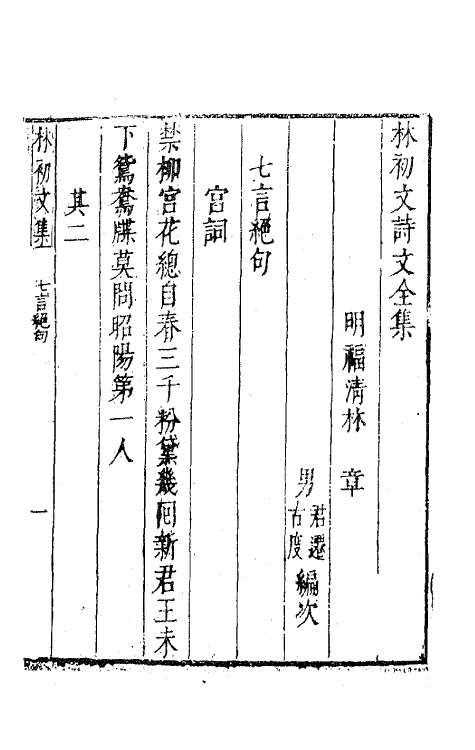 林初文詩文全集
明福清林 章
男 君遷 古度 編次
七言絕句
宮詞
禁柳宮花總自春三千粉黛幾回新君王未
下鴛鴦牒莫問昭陽第一人
其二
林初文集 七言絕句 一